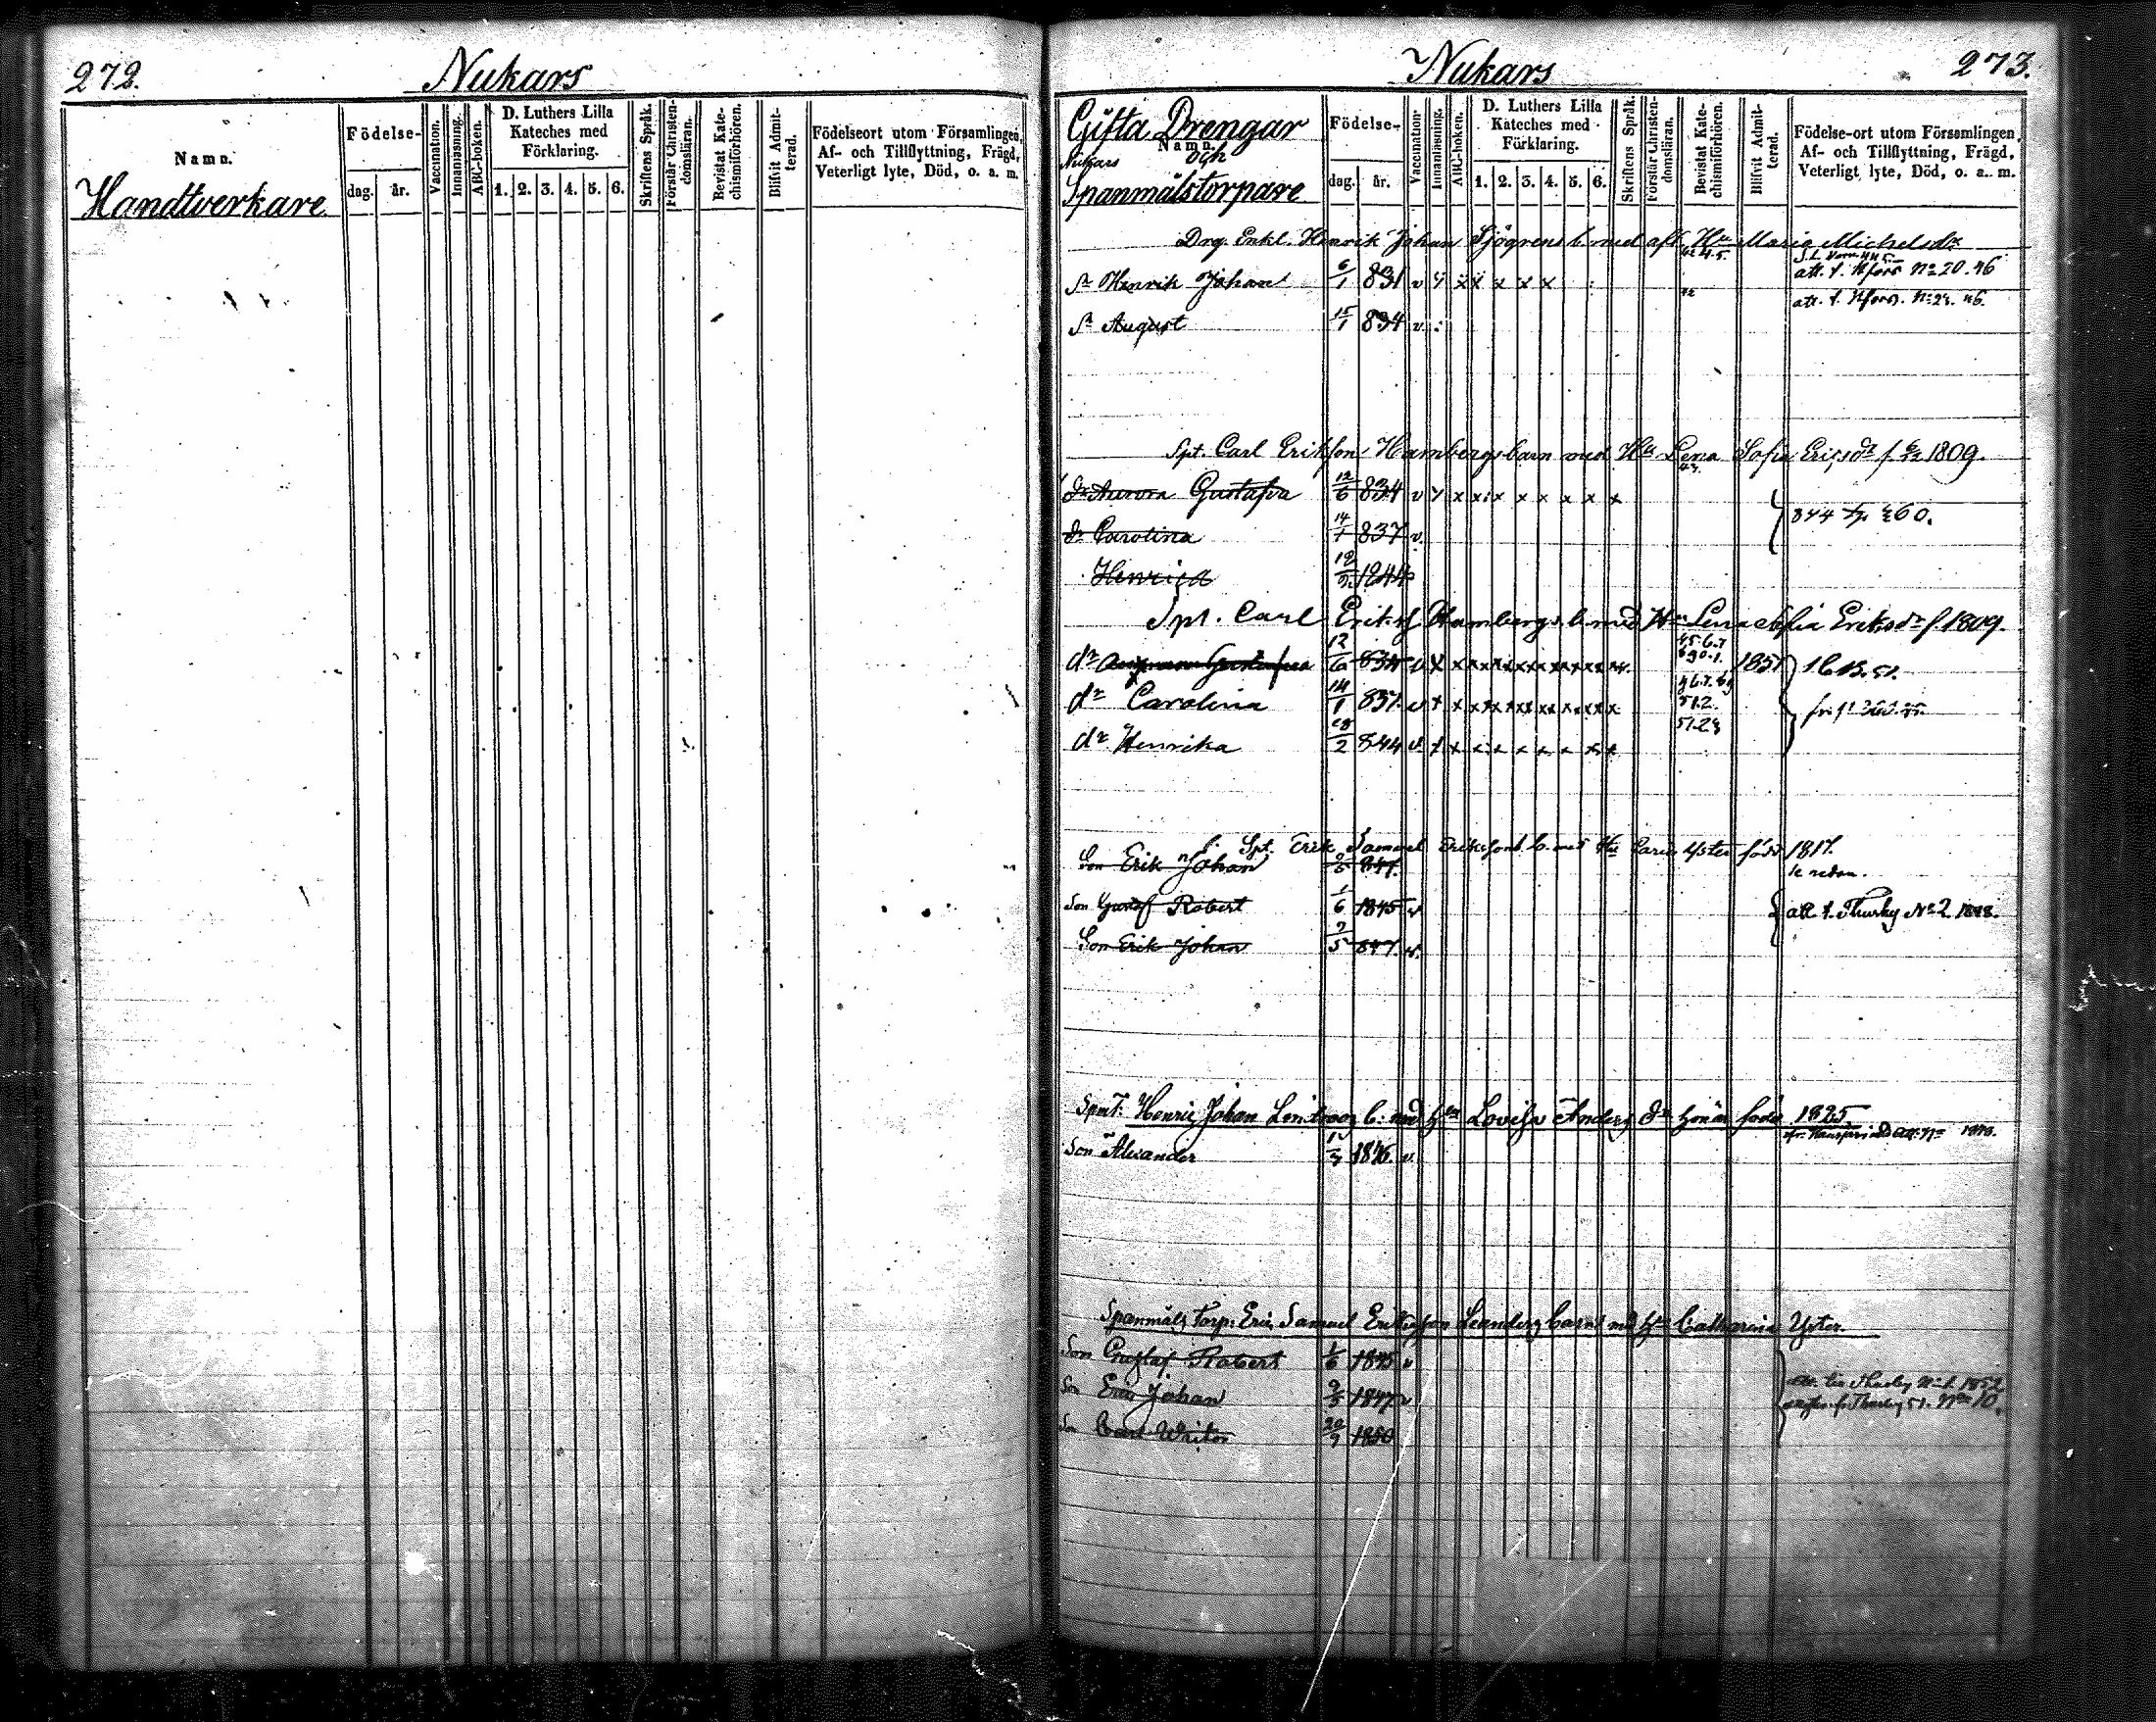 272.
Nukars
Namn.
Handtverkare
Födelse-
dag. år.
Vaccination.
Innanläsning.
ABC-boken.
D. Luthers Lilla
Kateches med
Förklaring.
1. 2. 3. 4. 5. 6.
Skriftens Språk.
Förstår Christen-
domsläran.
Bevistat Kate-
chismiförhören.
Blifvit Admit-
terad.
Födelseort utom Församlingen,
Af- och Tillflyttning, Frägd,
Veterligt lyte, Död, o. a. m.
Nukars
273.
Gifta Drengar
Namn.
Nukars och
Spanmålstorpare
Födelse-
dag. år.
Vaccination.
Innanläsning.
ABC-boken.
D. Luthers Lilla
Kateches med
Förklaring.
1. 2. 3. 4. 5. 6.
Skriftens Språk.
Förstår Christen-
domsläran.
Bevistat Kate-
chismiförhören.
Blifvit Admit-
terad.
Födelse-ort utom Församlingen,
Af- och Tillflyttning, Frägd,
Veterligt lyte, Död, o. a. m.
Drg. Enkl. Henrik Johan Sjögrens b. med afl. Hu Maria Michelsdr
Sn Henrik Johan 6/1 831 v y x x x x x att. t. Hfors No 20. 46
Sn August 15/1 834 v att. t. Hfors. 46.
Spt. Carl Eriksons Hambergs barn med Hu Lena Sofia Ericsdr f. 1809.
dr Aurora Gustafva 12/6 834 v y x x x x x x x x
844 60.
dr Carolina 14/1 837 v.
Henrica 1844
Spt. Carl Eriksf Hambergs b. med Hu Lena Sofia Eriksdr f. 1809.
dr 12/6 834 v 1851 16 B. 51.
dr Carolina 14/1 837. v
dr Henrika 2 844 v
Spt. Erik Samuel Eriksfons b. med Hu Carin Yster född 1817.
Son Erik Johan 9/5 847.
Son Gustaf Robert 1/6 1845 v
att t. Thusby No 2 1848.
Son Erik Johan 9/5 847. v.
Spmt. Henric Johan b. med Hu Lovisa Anders dr född 1825
Son Alexander 1846. v.
Spanmåls Torp. Eric Samuel Ericsson Leanders barn med Hu Catharina Yster.
Son Gustaf Robert 1/6 1845 v
Son Eric Johan 9/5 1847 v
Son Carl 1850